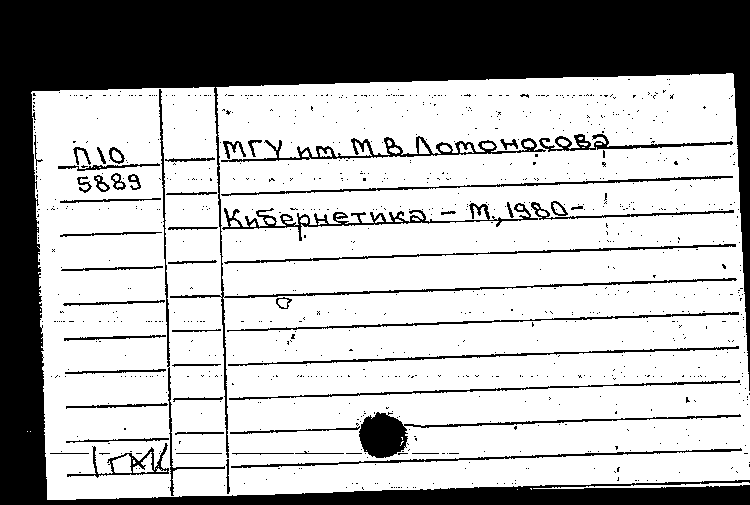 П10
5889
МГУ им. М.В Ломоносова
Кибернетика - М., 1980-
ГАК